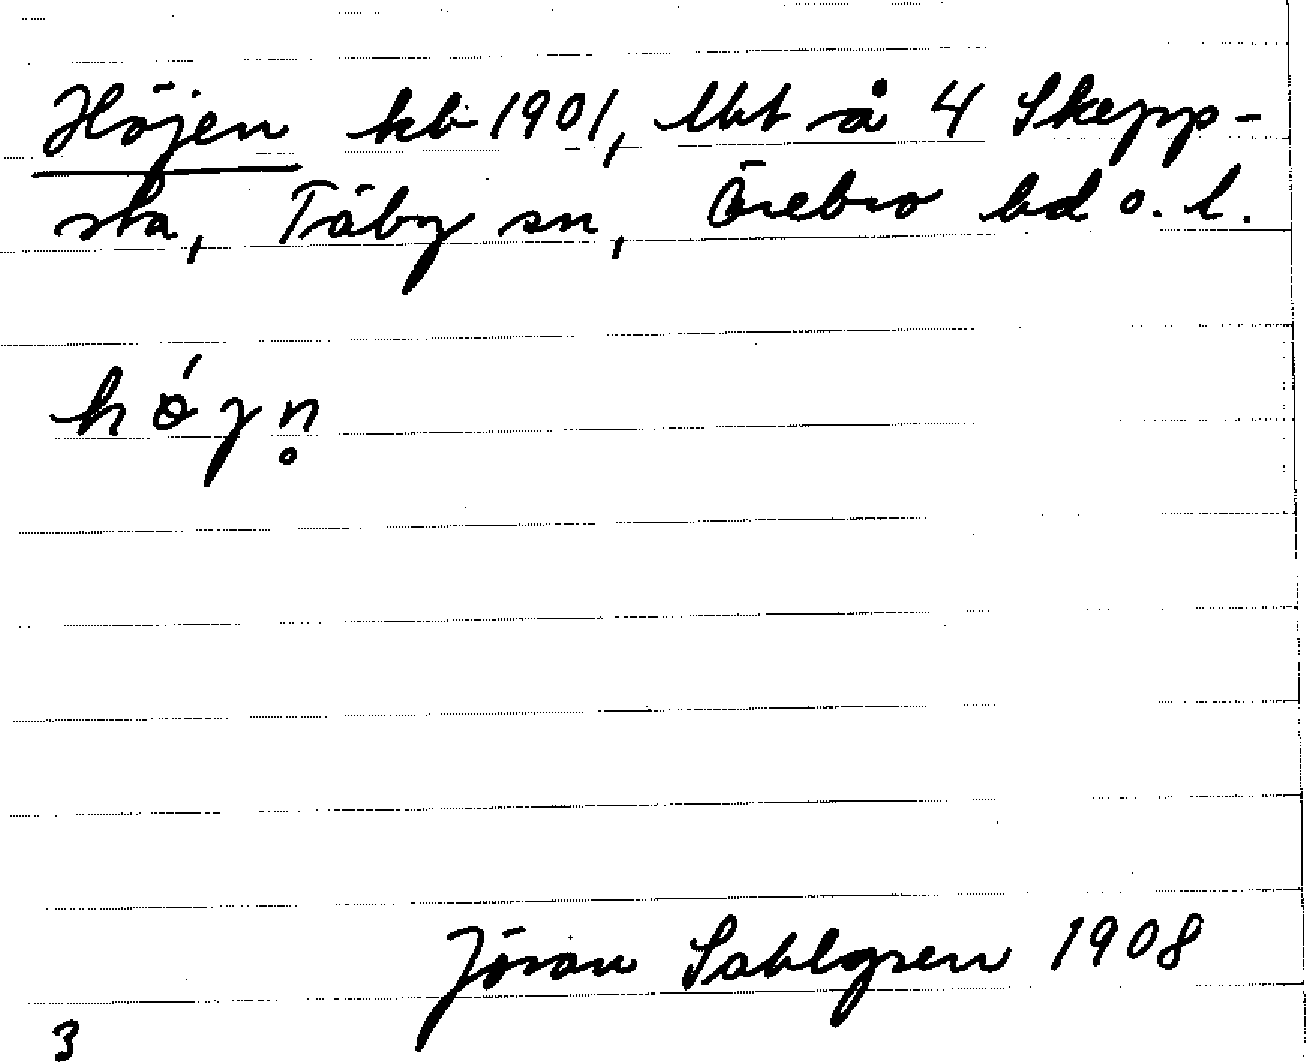 Höjen kb 1901, lht så 4 Skepp-
sta, Täby sn, Örebro hd o. l.
hǿjn̥
Jöran Sahlgren 1908
3